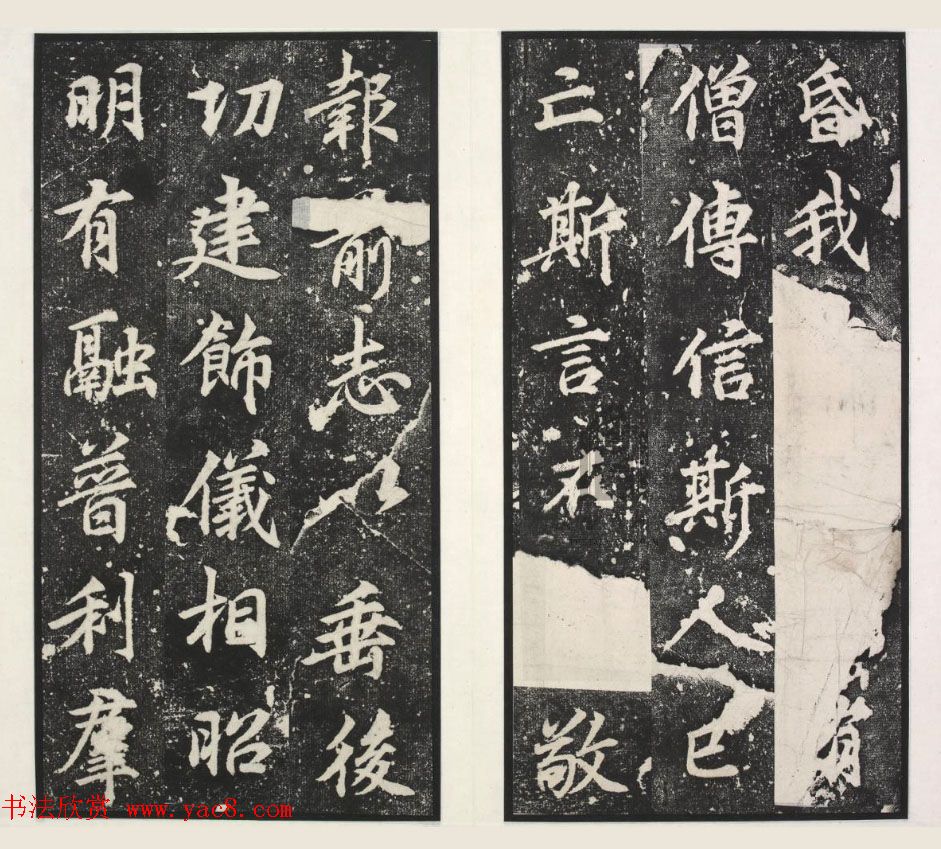 昏我
僧傳信斯人已
亡斯言不敬
報前志以垂後
切建飾儀相昭
明有融普利羣
书法欣赏 www.yac8.com